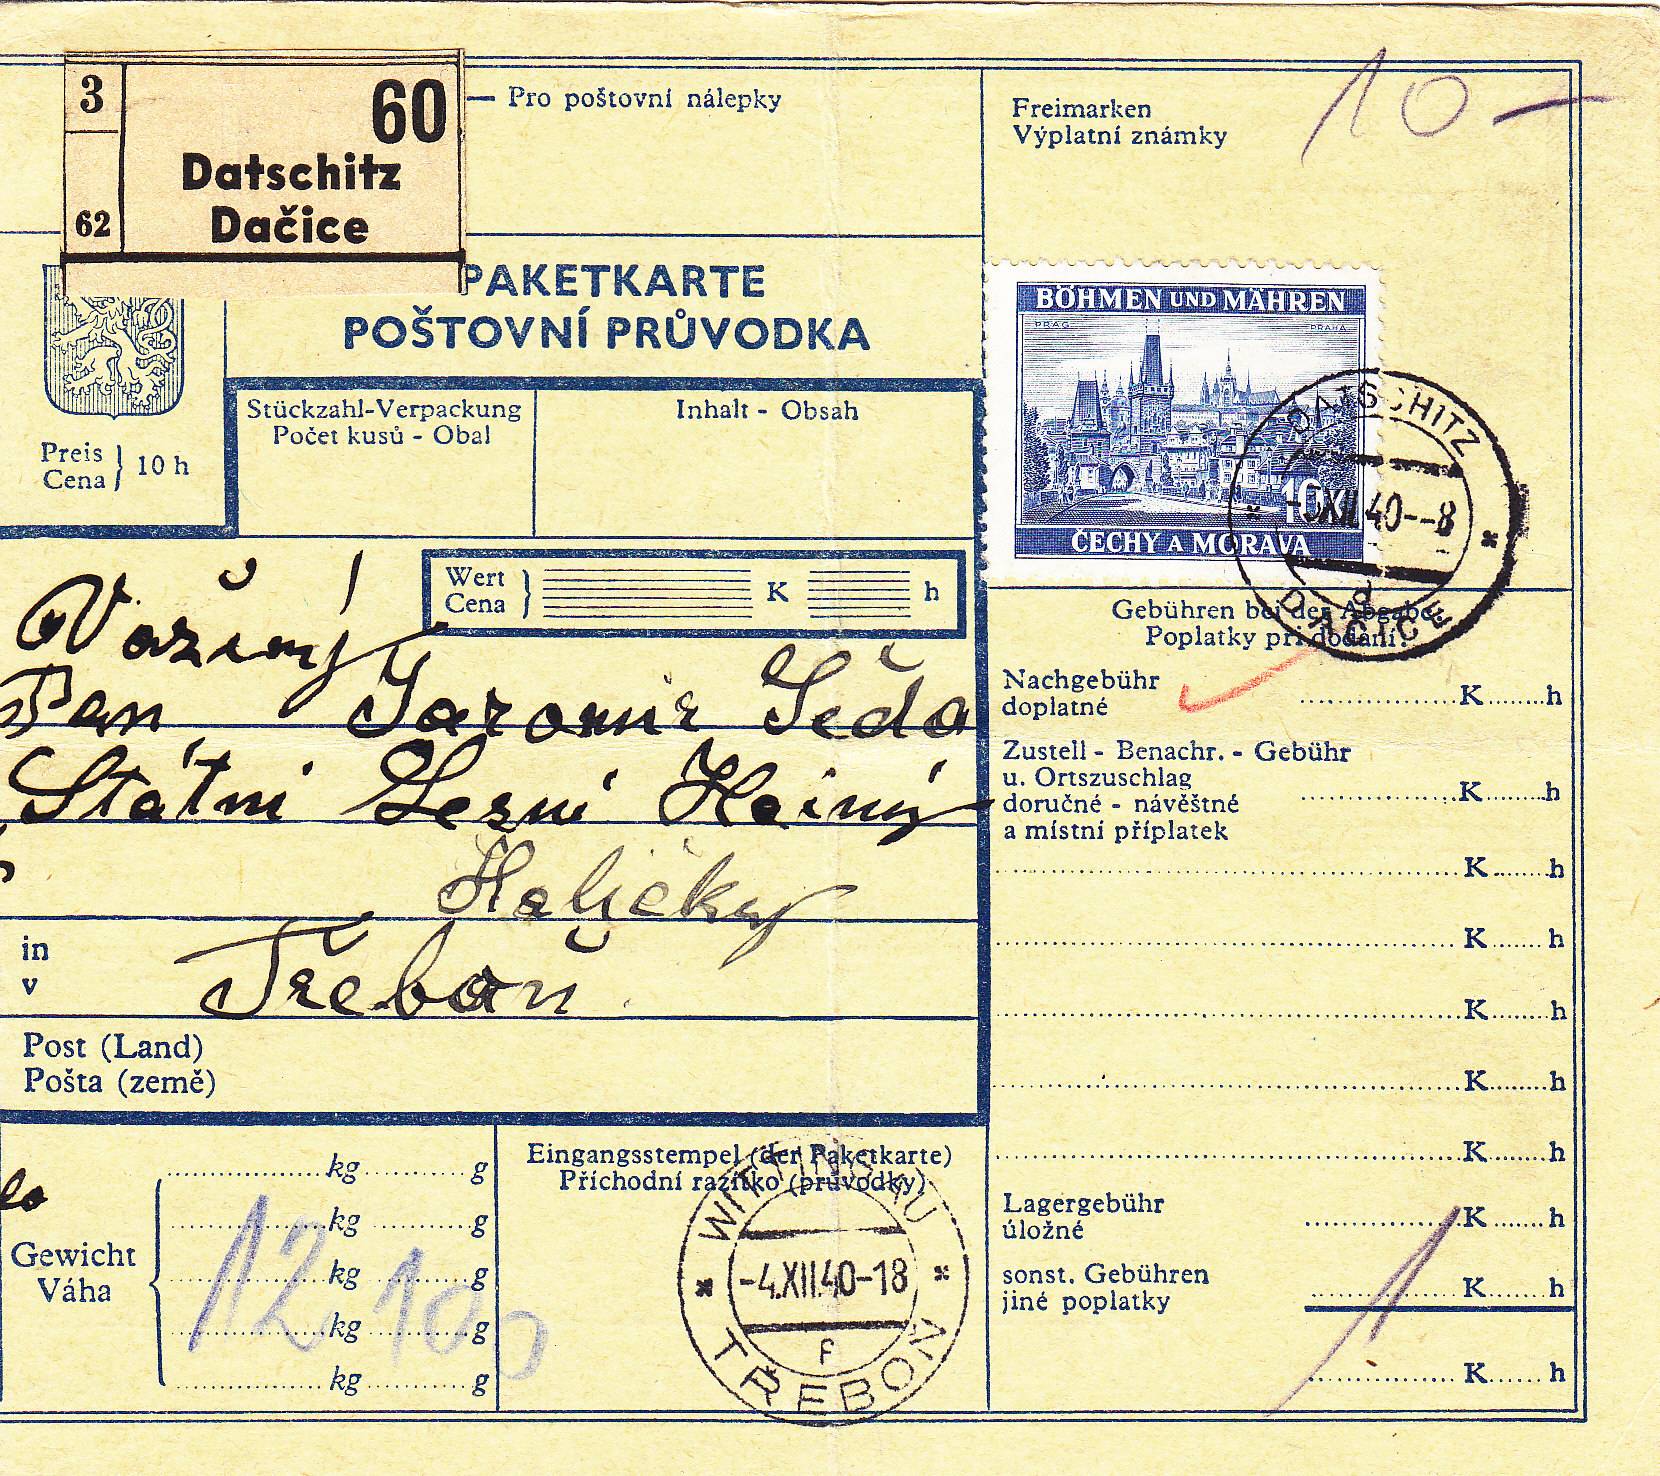 3
62
60
Datschitz
Dačice
Pro poštovní nálepky
PAKETKARTE
POŠTOVNÍ PRŮVODKA
Preis
Cena
10 h
Stückzahl-Verpackung
Počet kusů - Obal
Inhalt - Obsah
Wert
Cena
K
h
Pan Jaromír Šeda
Státní Lesní Hajný
in
v
Třeboň
Post (Land)
Pošta (země)
Gewicht
Váha
kg g
kg g
kg g
kg g
kg g
12 100
Eingangsstempel (der Paketkarte)
Příchodní razítko (průvodky)
WITTINGAU
-4.XII.40-18
f
TŘEBOŇ
Freimarken
Výplatní známky
10 —
BÖHMEN UND MÄHREN
PRAG
PRAHA
10K
ČECHY A MORAVA
DATSCHITZ
XII.40--8
d
DAČICE
Gebühren bei der Abgabe
Poplatky při dodání:
Nachgebühr
doplatné
K h
Zustell - Benachr. - Gebühr
u. Ortszuschlag
doručné - návěštné
a místní příplatek
K h
K h
K h
K h
K h
K h
Lagergebühr
úložné
K h
sonst. Gebühren
jiné poplatky
K h
K h